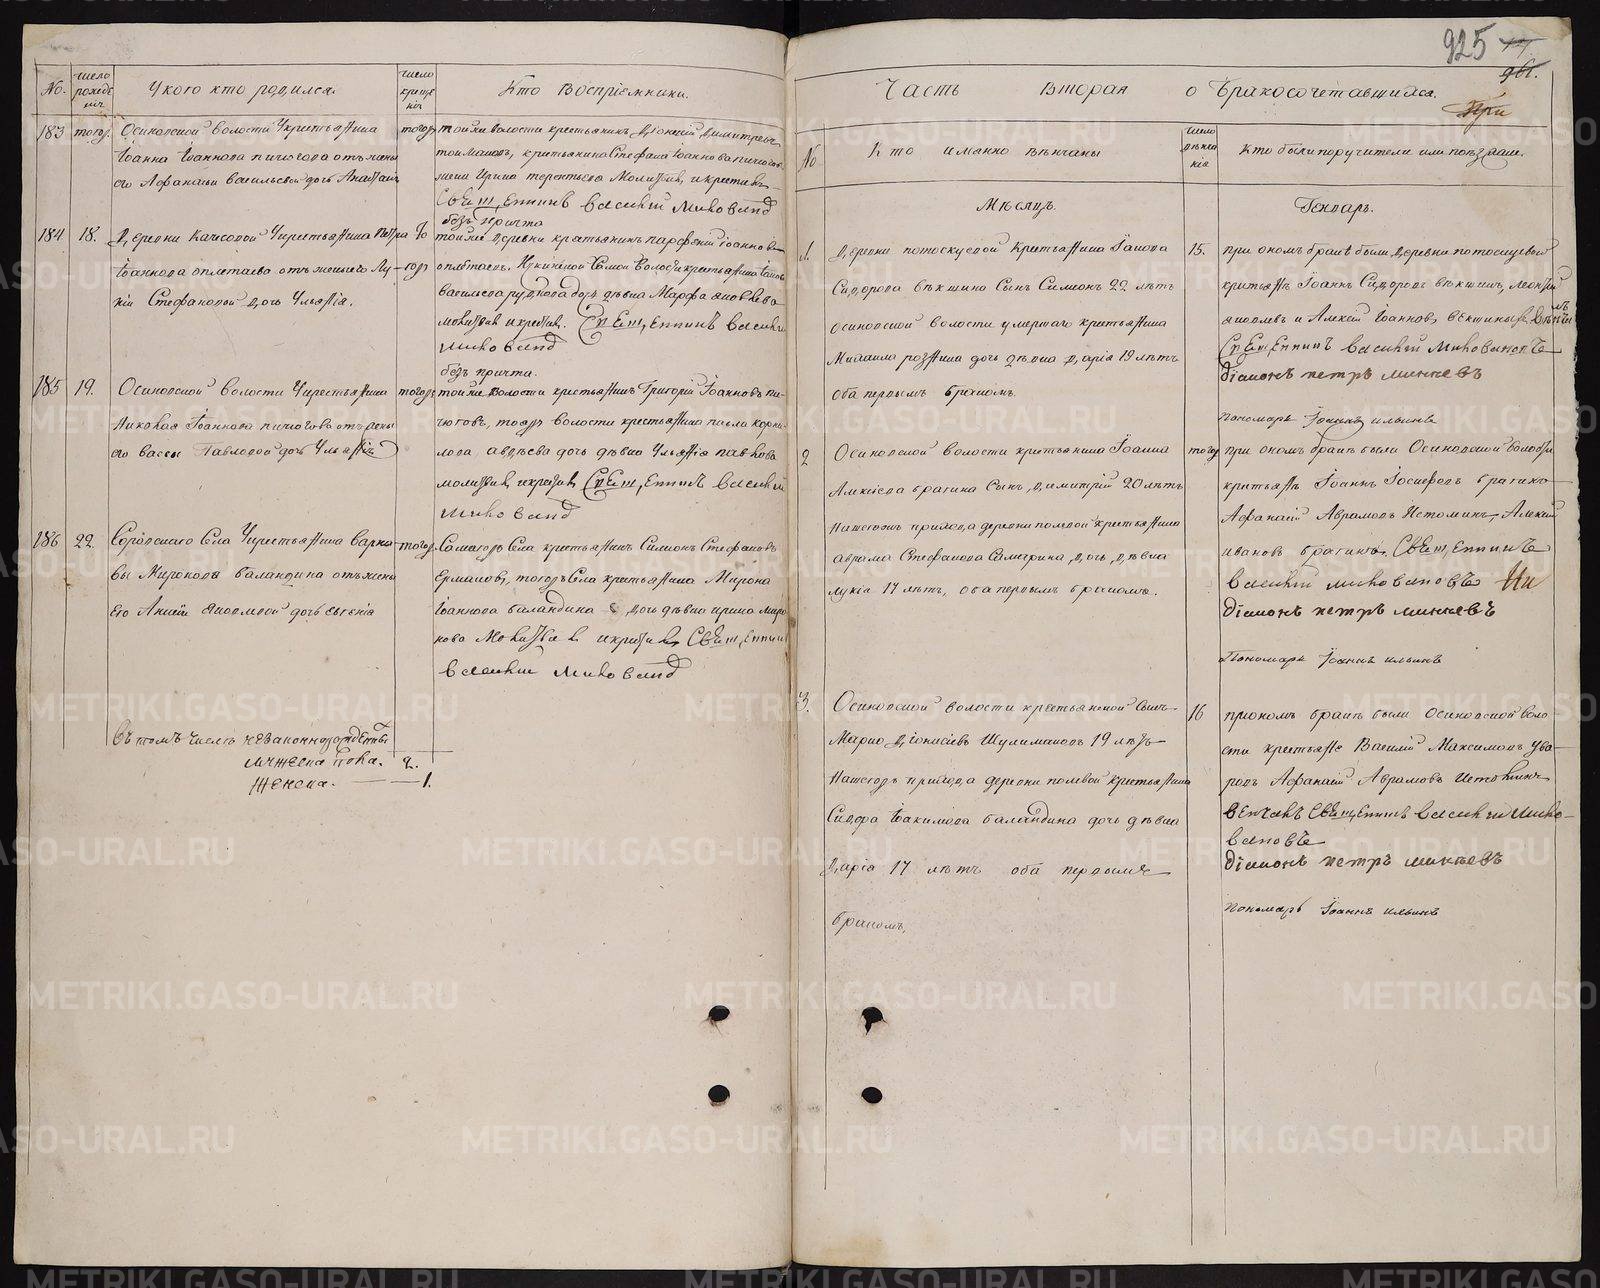 No. число рождения У кого кто родился. число крещения Кто Воспрiемники.
183 тогож. Осиновской волости Укрестьянина
Iоанна Iоаннова пичюгова отъ жены
его Афанасьи васильевой дочь Анастасiя
тогож той же волости крестьянинъ Дiонисiй Димитрiевъ
крестьянина Стефана Iоаннова пичюгова
жена Ирина терентьева Молитвив. и крестивъ
Свящ,енникъ василiй Миновановъ
безъ причта
184 18. Деревни Качсовой Укрестьянина Петра
Iоаннова оплетаева отъ жены его Лу-
кiи Стефановой дочь Ульянiя.
тогож той же деревни крестьянинъ парфенiй iоанновъ
оплетаевъ. волости крестьянина
васильева дочь девка Марфа яковлева
молитвив и крестив. Свящ,енникъ василiй
Миновановъ
безъ причта.
185 19. Осиновской волости Укрестьянина
Николая Iоаннова пичюгова отъ жены
его вассы Павловой дочь Ульянiя
тогож той же волости крестьянинъ Григорiй Iоанновъ пи-
чюговъ, тояж волости крестьянина павла корни-
лова авдѣева дочь дѣвка Ульянiя павлова
молитвив, и крестив, Свящ,енникъ василiй
Миновановъ
186 22. Сородскаго Села Укрестьянина варна-
вы Миронова баландина отъ жены
Его Аннiи яковлевой дочь евгенiя
тогож. Самагожъ Села крестьянинъ Симионъ Стефановъ
Ермаковъ, тогожъ Села крестьянина Мирона
iоаннова баландина дочь дѣвка ирина миро-
нова Молитвив и крестивъ Свящ,енникъ
василiй Миновановъ
Въ томъ числѣ незаконнорожденныхъ
мужеска пола. 2.
Женска. — 1.
925
961.
Часть вторая о бракосочетавшихся.
No Кто имянно вѣнчаны число вѣнчанiя Кто были поручители или поѣзжане.
Мѣсяцъ. Генварь.
1. Деревни потоскуевой крестьянина Iакова
Сидорова вѣкшина Сынъ Симионъ 22 лѣтъ
осиновской волости умершаго крестьянина
Михаила розянина дочь дѣвка Дарiя 19 лѣтъ
оба первымъ бракомъ.
15. при ономъ бракѣ были деревни потоскуевой
крестьянъ Iоаннъ Сидоровъ вѣкшинъ, леонтiй
яковлевъ и Алексiй Iоанновъ, вѣкшины, вѣнчалъ
Свящ,енникъ василiй Миновановъ
дiаконъ петръ минѣевъ
пономарь Iоаннъ ильинъ
2 Осиновской волости крестьянина Iоанна
Алексiева брагина Сынъ, Димитрiй 20 лѣтъ
нашегожъ прихода деревни полевой крестьянина
аврама Стефанова дочь, дѣвка
лукiя 17 лѣтъ, оба первымъ бракомъ.
тогож при ономъ бракѣ были Осиновской волости
крестьянъ Iоаннъ Iосифовъ брагинъ
Афанасiй Аврамовъ Истоминъ, Алексiй
ивановъ брагинъ, Свящ,енникъ
василiй миновановъ
дiаконъ петръ минѣевъ
Пономарь Iоаннъ ильинъ
3. Осиновской волости крестьянской Сынъ
Марко Дiонисiевъ Шулимановъ 19 лѣтъ
нашегожъ прихода деревни полевой крестьянина
Сидора Iоакимова баландина дочь дѣвка
Дарiя 17 лѣтъ оба первымъ
бракомъ,
16 при ономъ бракѣ были Осиновской воло-
сти крестьяне Василiй Максимовъ ува-
ровъ Афанасiй Аврамовъ Истоминъ
вѣнчалъ Свящ,енникъ василiй мино-
вановъ
дiаконъ петръ минѣевъ
пономарь Iоаннъ ильинъ
METRIKI.GASO-URAL.RU